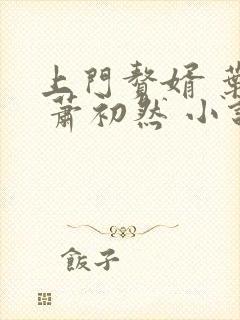 上門贅婿 葉
蕭初然 小說
飯子